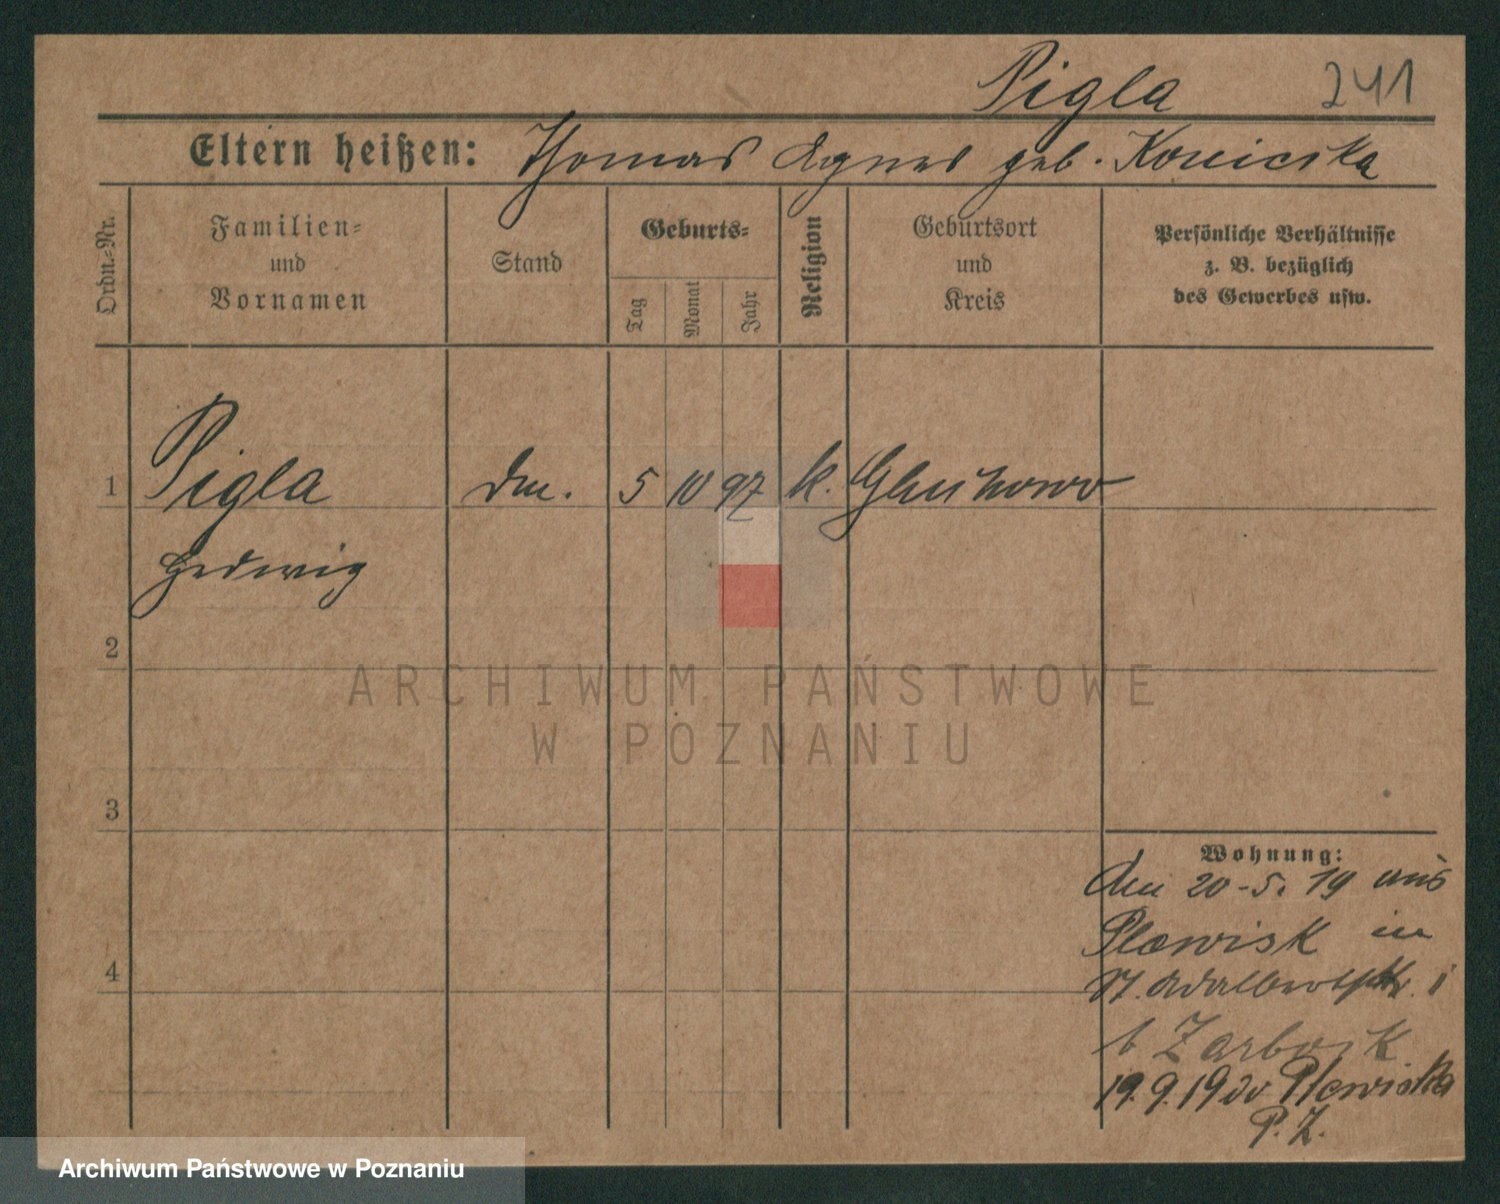 Pigla 241
Eltern heißen: Thomas Agnes geb. Konieczka
Ordn.-Nr.
Familien-
und
Vornamen
Stand
Geburts-
Tag
Monat
Jahr
Religion
Geburtsort
und
Kreis
Persönliche Verhältnisse
z. B. bezüglich
des Gewerbes usw.
1 Pigla dm. 5 10 97 k. Gluchowo
Hedwig
2
3
4
Wohnung:
den 20-5. 19 aus
Plewisk in
St. Adalbertstr. 1
b
19.9.19 do Plewiska
P. Z.
ARCHIWUM PAŃSTWOWE
W POZNANIU
Archiwum Państwowe w Poznaniu